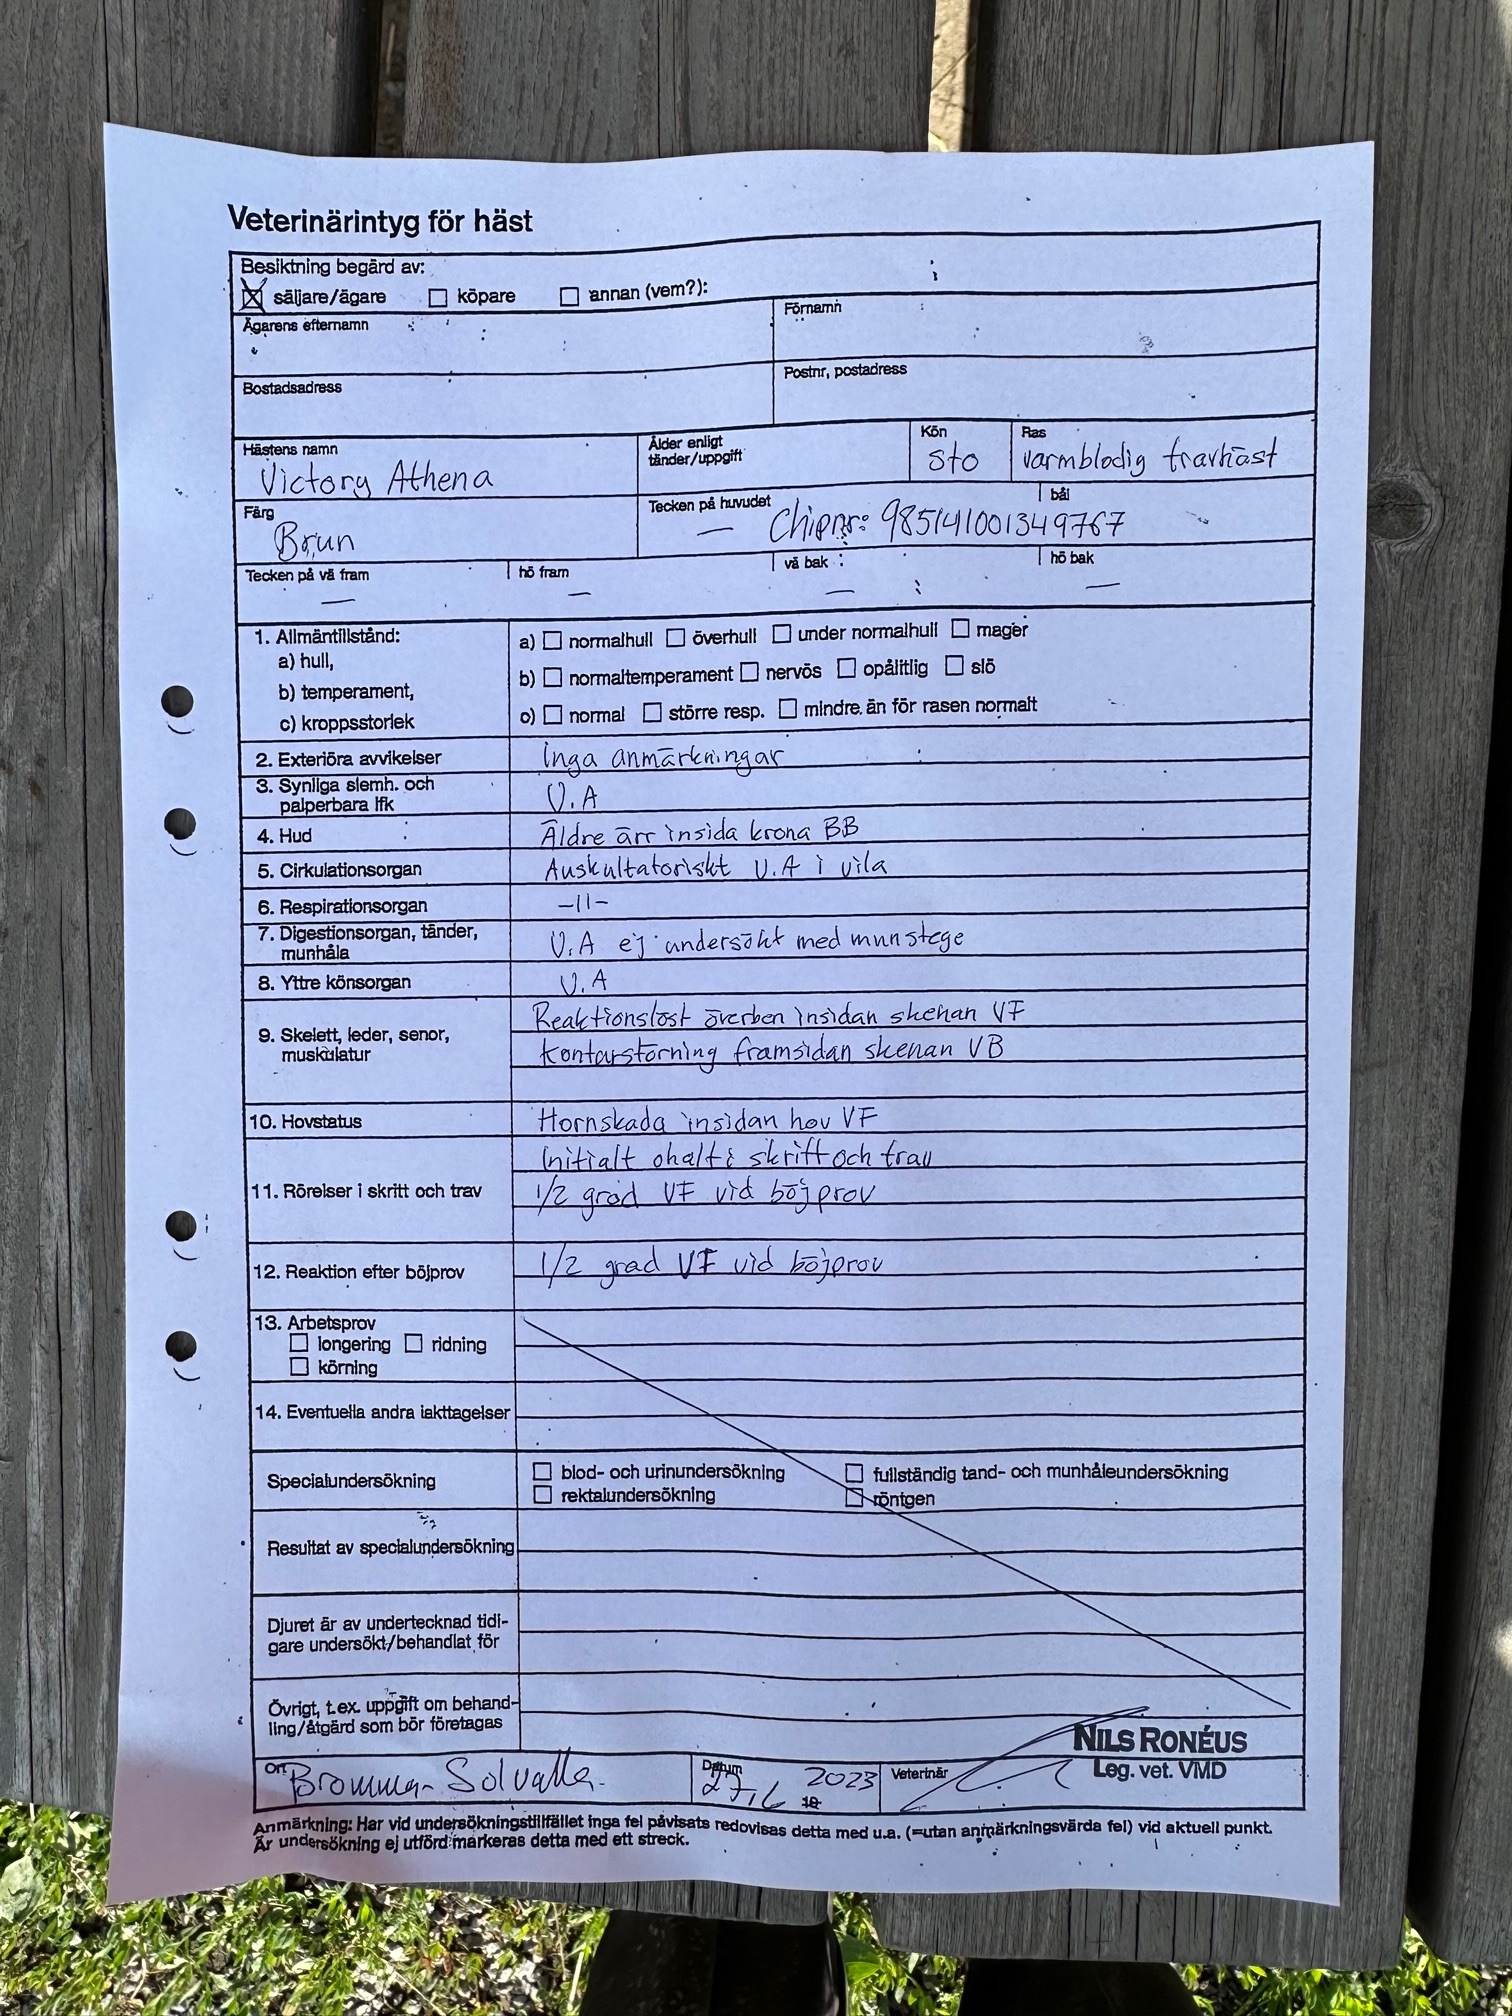 Veterinärintyg för häst
Besiktning begärd av:
säljare/ägare köpare annan (vem?):
Ägarens efternamn Förnamn
Bostadsadress Postnr, postadress
Hästens namn Ålder enligt tänder/uppgift Kön Ras
Victory Athena Sto varmblodig travhäst
Färg Tecken på huvudet bål
Brun — Chipnr: 985141001349767
Tecken på vä fram hö fram vä bak hö bak
— — — —
1. Allmäntillstånd: a) normalhull överhull under normalhull mager
a) hull,
b) temperament, b) normaltemperament nervös opålitlig slö
c) kroppsstorlek c) normal större resp. mindre än för rasen normalt
2. Exteriöra avvikelser Inga anmärkningar
3. Synliga slemh. och
palperbara lfk U.A
4. Hud Äldre ärr insida krona BB
5. Cirkulationsorgan Auskultatoriskt U.A i vila
6. Respirationsorgan -11-
7. Digestionsorgan, tänder,
munhåla U.A ej undersökt med munstege
8. Yttre könsorgan U.A
Reaktionslöst överben insidan skenan VF
9. Skelett, leder, senor,
muskulatur Konturstörning framsidan skenan VB
10. Hovstatus Hornskada insidan hov VF
Initialt ohalt i skritt och trav
11. Rörelser i skritt och trav 1/2 grad VF vid böjprov
12. Reaktion efter böjprov 1/2 grad VF vid böjprov
13. Arbetsprov
longering ridning
körning
14. Eventuella andra iakttagelser
Specialundersökning blod- och urinundersökning fullständig tand- och munhåleundersökning
rektalundersökning röntgen
Resultat av specialundersökning
Djuret är av undertecknad tidi-
gare undersökt/behandlat för
Övrigt, t.ex. uppgift om behand-
ling/åtgärd som bör företagas
NILS RONÉUS
Leg. vet. VMD
Ort Bromma - Solvalla Datum 27,6 2023 19 Veterinär
Anmärkning: Har vid undersökningstillfället inga fel påvisats redovisas detta med u.a. (=utan anmärkningsvärda fel) vid aktuell punkt.
Är undersökning ej utförd markeras detta med ett streck.